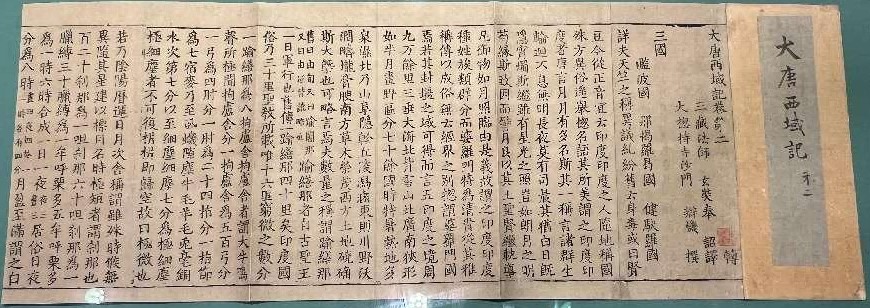 大唐西域記 卷二
大唐西域記卷第二
三藏法師 玄奘奉 詔譯
大總持寺沙門 辯機 撰
三國
濫波國 那揭羅曷國 健馱羅國
詳夫天竺之稱異議糺紛舊云身毒或曰賢
豆今從正音宜云印度印度之人隨地稱國
殊方異俗遙舉總名語其所美謂之印度印
度者唐言月月有多名斯其一稱言諸群生
輪迴不息無明長夜莫有司晨其猶白日既
隱宵燭斯繼雖有星光之照豈如朗月之明
苟緣斯致因而譬月良以其土聖賢繼軌導
凡御物如月照臨由是義故謂之印度印度
種姓族類群分而婆羅門特為清貴從其雅
稱傳以成俗無云經界之別總謂婆羅門國
焉若其封疆之域可得而言五印度之境周
九万餘里三垂大海北背雪山北廣南狹形
如半月畫野區分七十餘國時特暑熱地多
泉濕北乃山阜隱軫丘陵舄鹵東則川野沃
潤疇隴膏腴南方草木榮茂西方土地磽确
斯大槩也可略言焉夫數量之稱謂踰繕那
舊曰由旬又曰踰闍那又曰由延皆訛略也踰繕那者自古聖王
一日軍行也舊傳一踰繕那四十里矣印度國
俗乃三十里聖教所載唯十六里窮微之數分
一踰繕那為八拘盧舍拘盧舍者謂大牛鳴
聲所極聞稱拘盧舍分一拘盧舍為五百弓分
一弓為四肘分一肘為二十四指分一指節
為七宿麥乃至虱蟣隙塵牛毛羊毛兔毫銅
水次第七分以至細塵細塵七分為極細塵
極細塵者不可復析析即歸空故曰極微也
若乃陰陽曆運日月次舍稱謂雖殊時候無
異隨其星建以標月名時極短者謂剎那也
百二十剎那為一呾剎那六十呾剎那為一
臘縛三十臘縛為一牟呼栗多五牟呼栗多
為一時六時合成一日一夜晝三夜三居俗日夜
分為八時晝四夜四於一一時各有四分月盈至滿謂之白